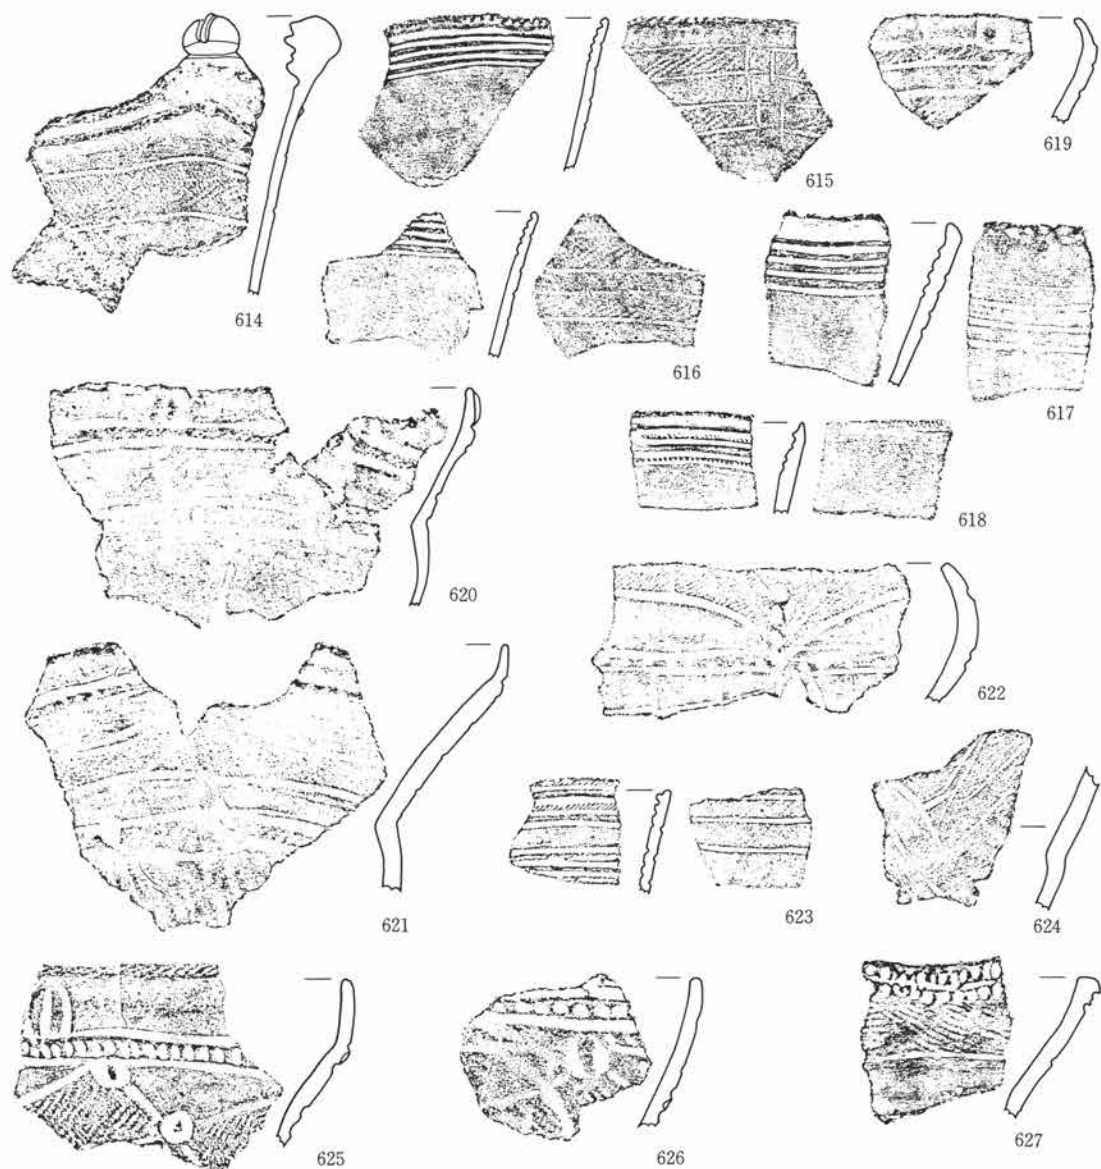 614
615
619
616
617
618
620
622
621
623
624
625
626
627